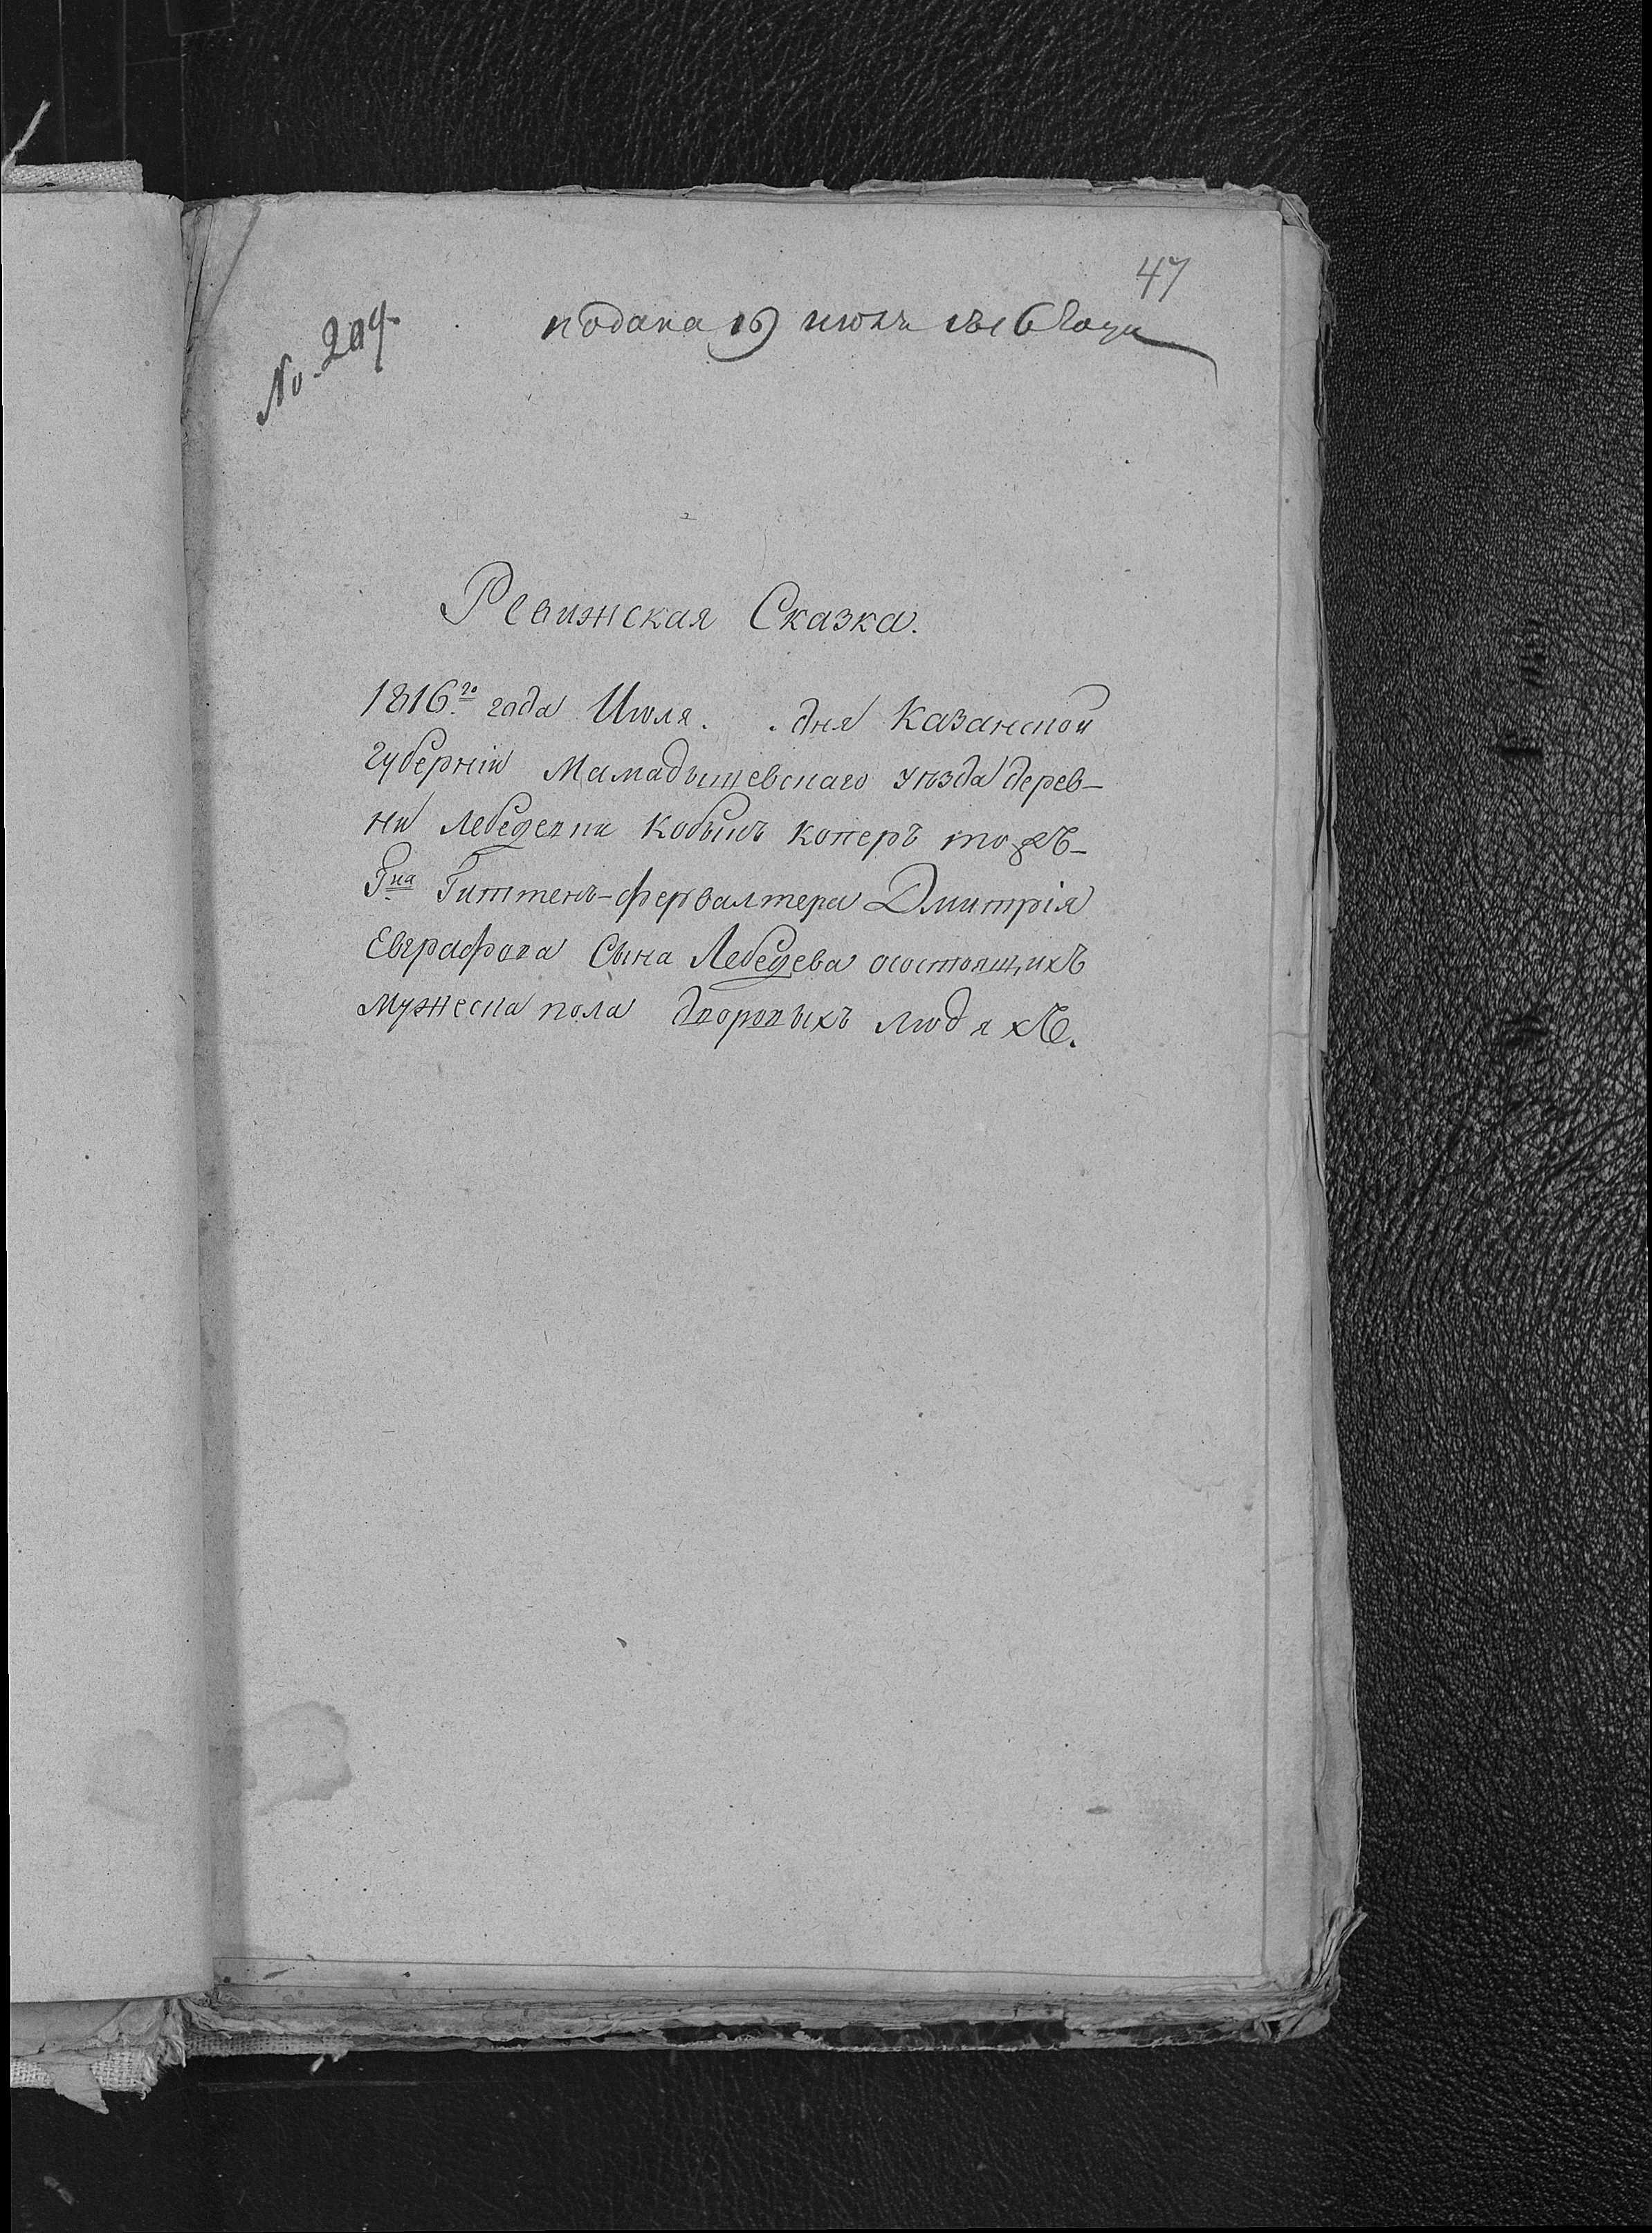 47
No. 209.
подана 19 июля 1816 года
Ревижская Сказка.
1816.го года Июля. . дня Казанской
губернiи Мамадышевскаго уѣзда дерев-
ни Лебедевки Кобыкъ коперъ тожъ-
Г.на Гиттенъ-фервалтера Дмитрiя
Евграфова Сына Лебедева осостоящихъ
мужеска пола дворовыхъ людяхъ.